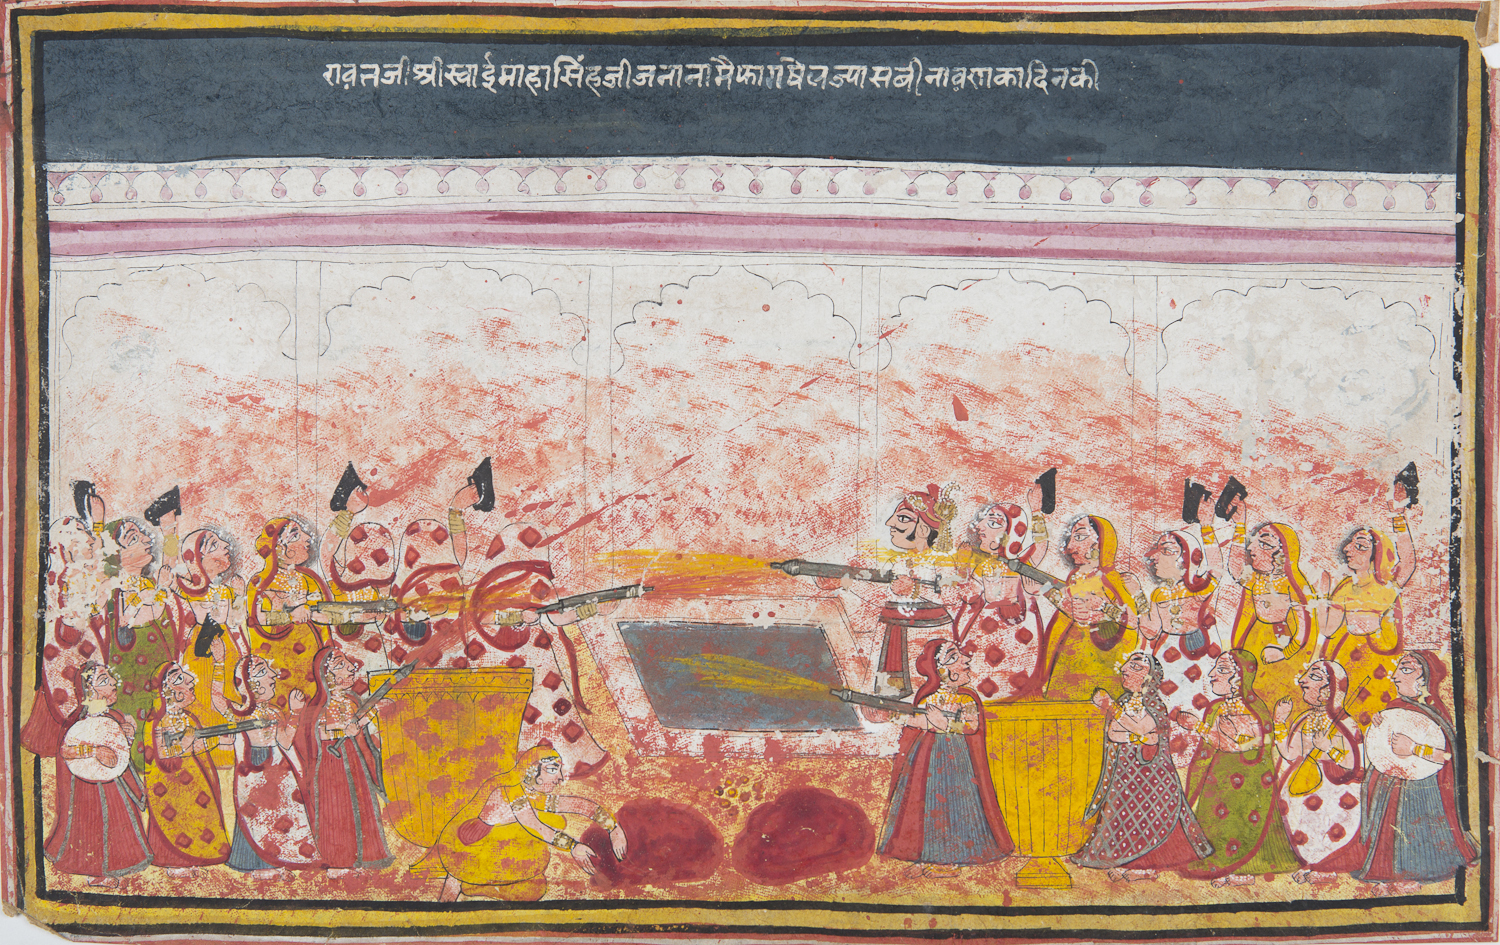 रावतजी श्री स्वाई माहा सिंहजी जनाना मै फाग षेल ज्या स बी नाव णाका दिन की